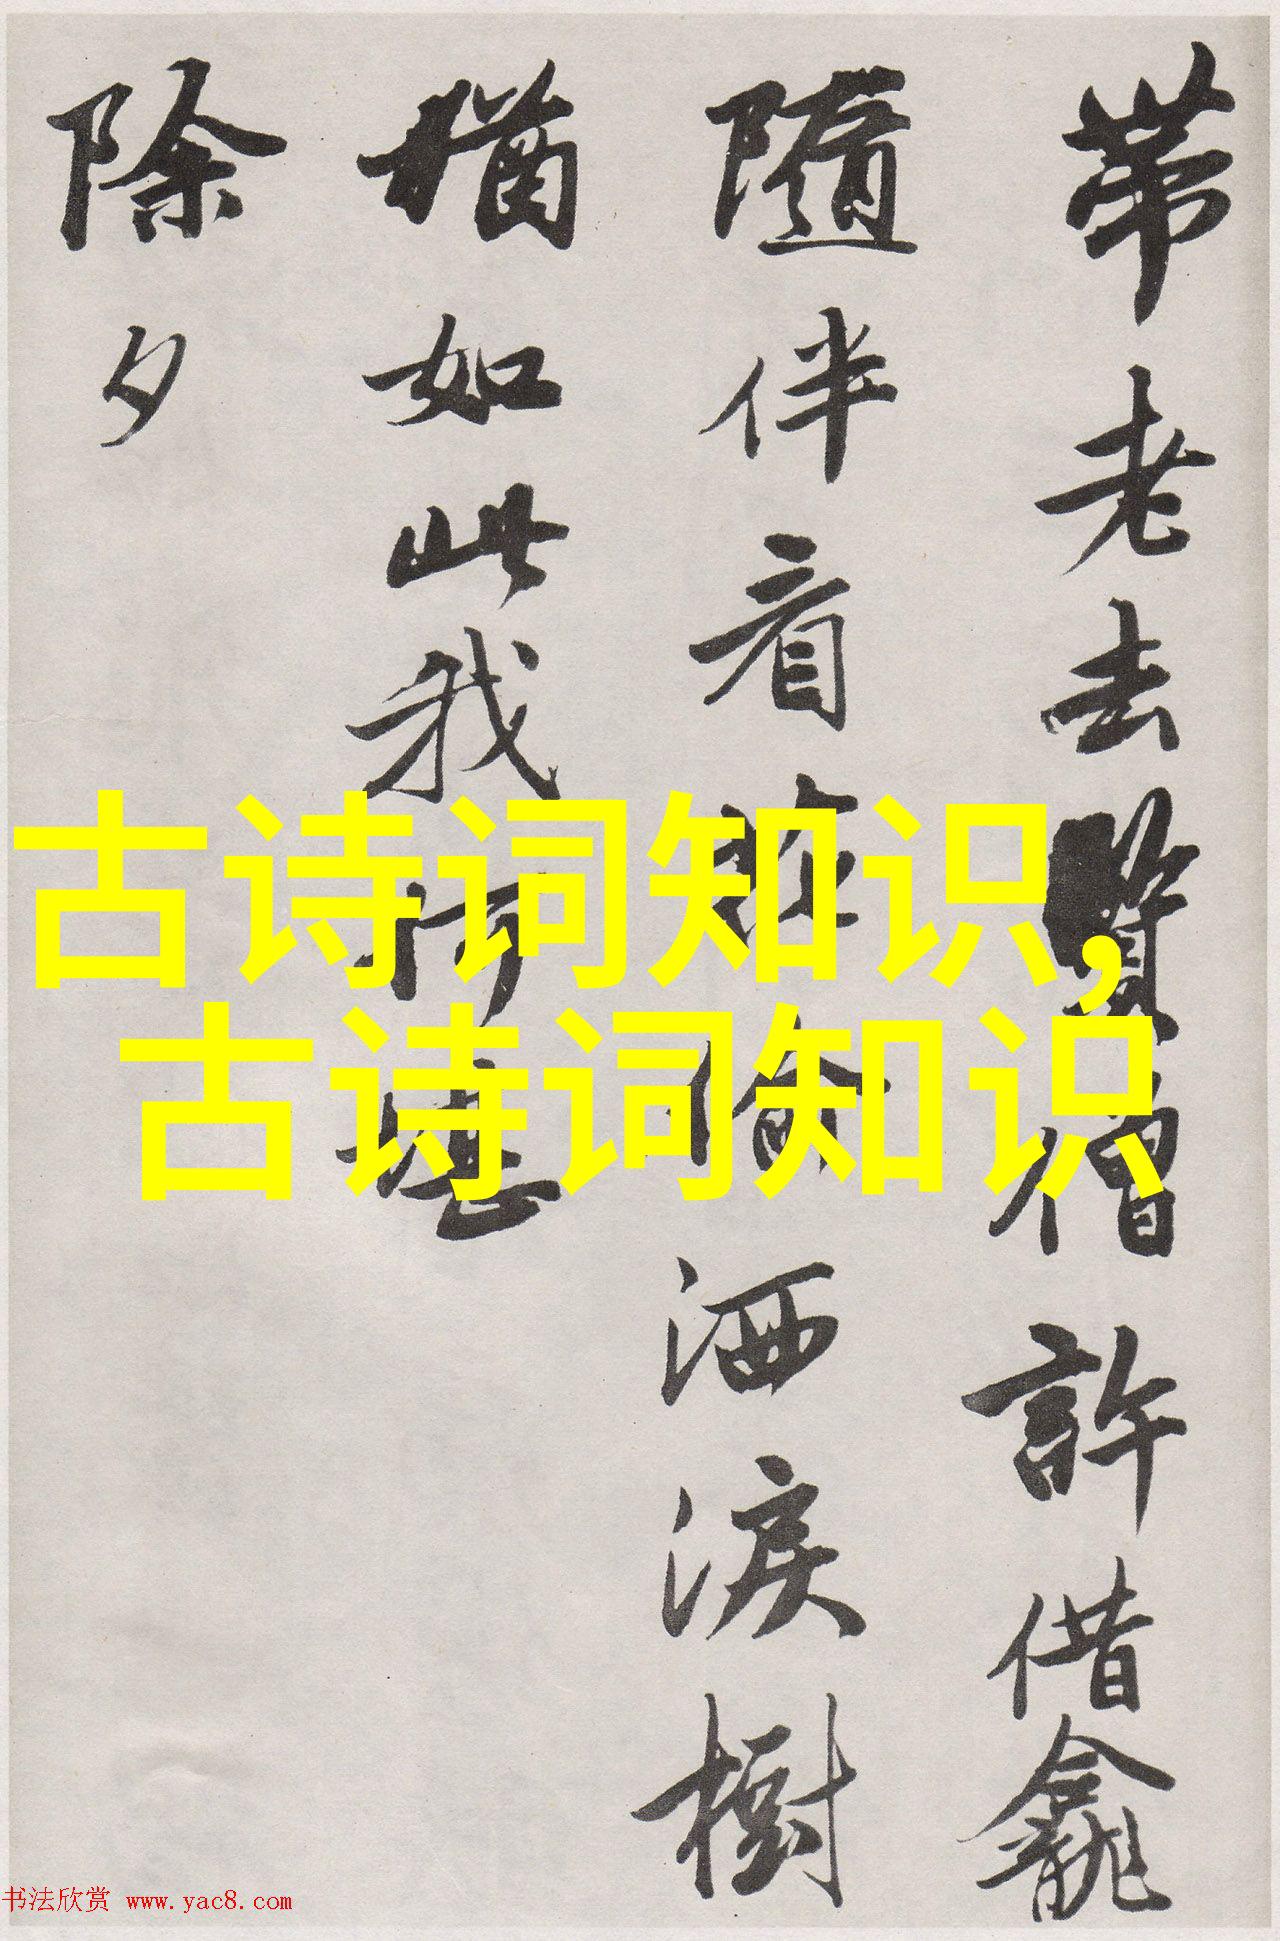 帶老去賢僧許借龕
隨伴看偷洒淚樹
猶如此我何堪
除夕
古诗词知识,
古诗词知识
书法欣赏 www.yac8.com